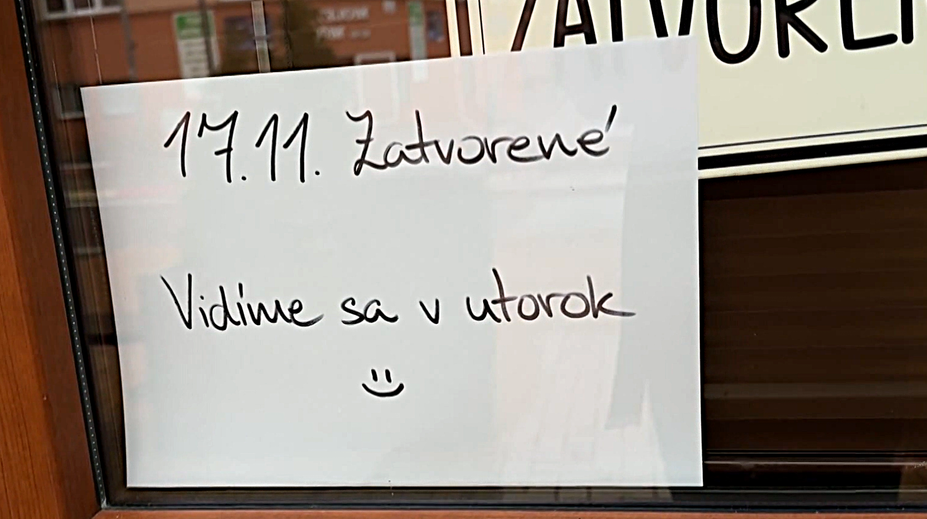 ZATVORENÉ
17.11. Zatvorené
Vidíme sa v utorok